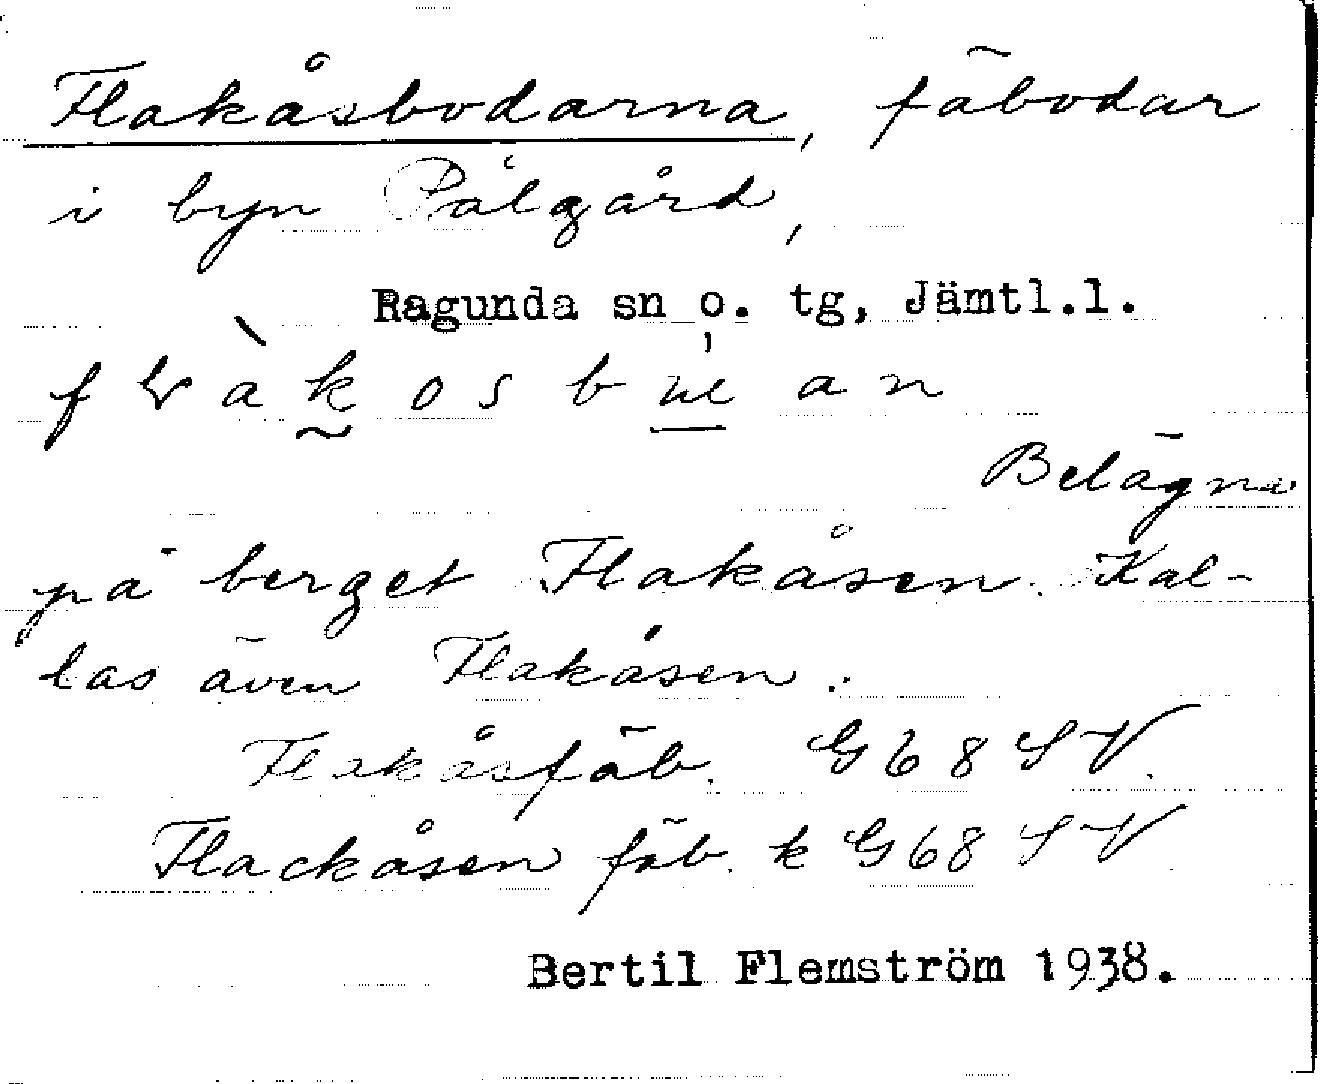 Flakåsbodarna, fäbodar
i byn Pålgård,
Ragunda sn o. tg, Jämtl.l.
på berget Flakåsen. Kal-
las även Flakåsen.
Belägna
Flakåsfäb. G 68 SV.
Flackåsen fäb. k G 68 SV
Bertil Flemström 1938.